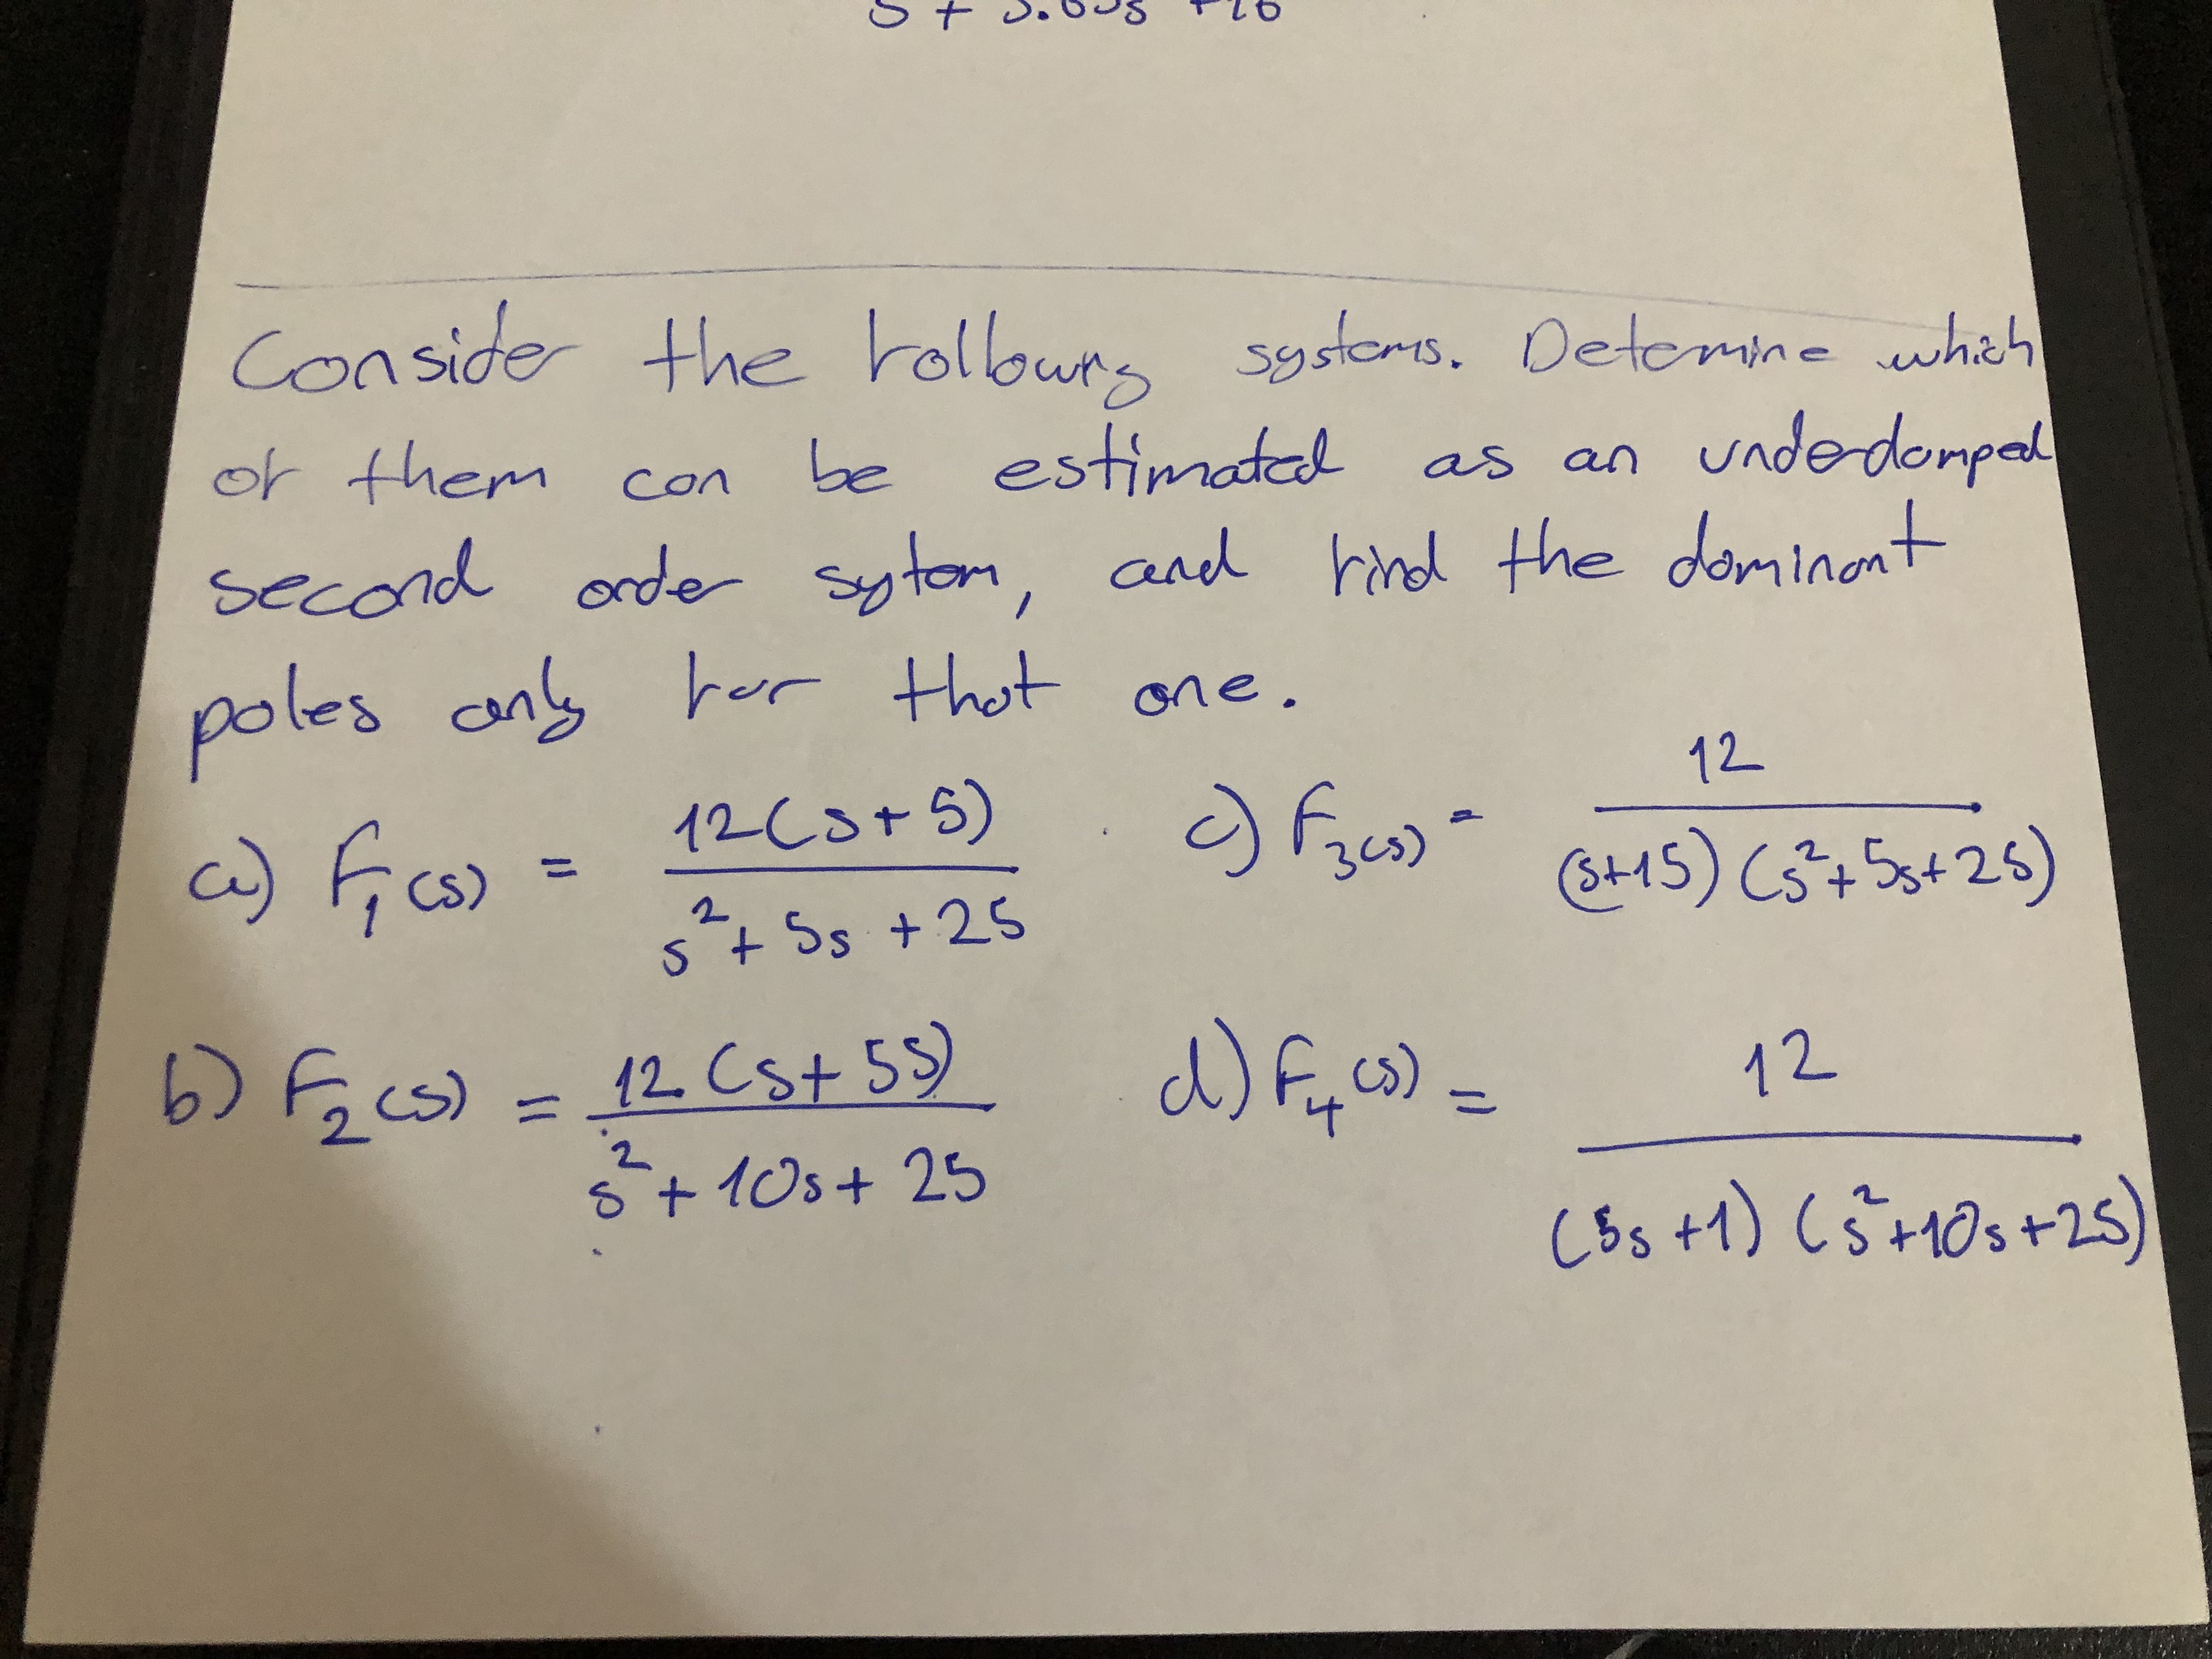 Consider the following systems. Determine which
of them can be estimated as an underdamped
second order sytem, and find the dominant
poles only for that one.
a) F₁(s) = 12(s+5) / s²+5s+25
c) F₃(s) = 12 / (s+15)(s²+5s+25)
b) F₂(s) = 12(s+55) / s²+10s+25
d) F₄(s) = 12 / (5s+1)(s²+10s+25)